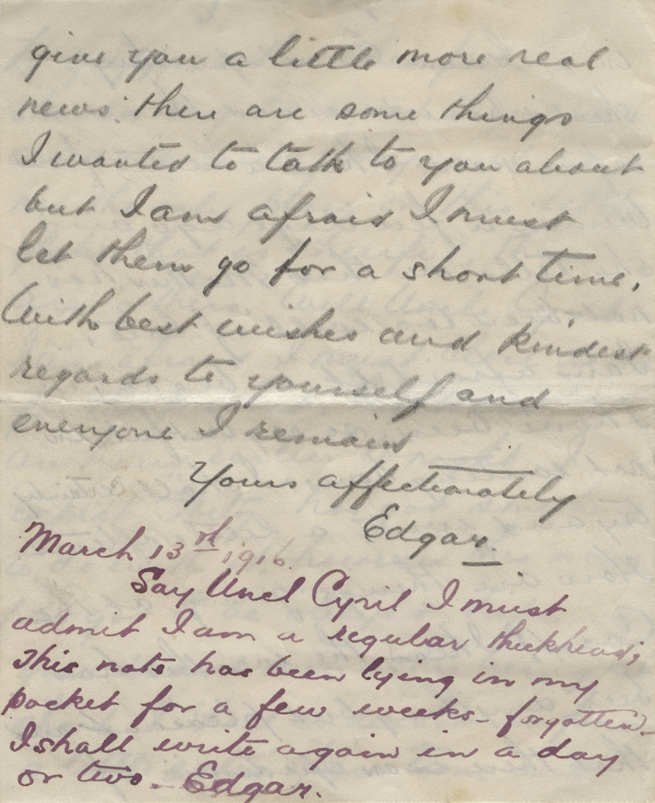 give you a little more real
news. there are some things
I wanted to talk to you about
but I am afraid I must
let them go for a short time.
With best wishes and kindest
regards to yourself and
everyone I remain
Yours affectionately
Edgar.
March 13th 1916.
Say Uncl Cyril I must
admit I am a regular thickhead;
this note has been lying in my
pocket for a few weeks - forgotten -
I shall write again in a day
or two. Edgar.